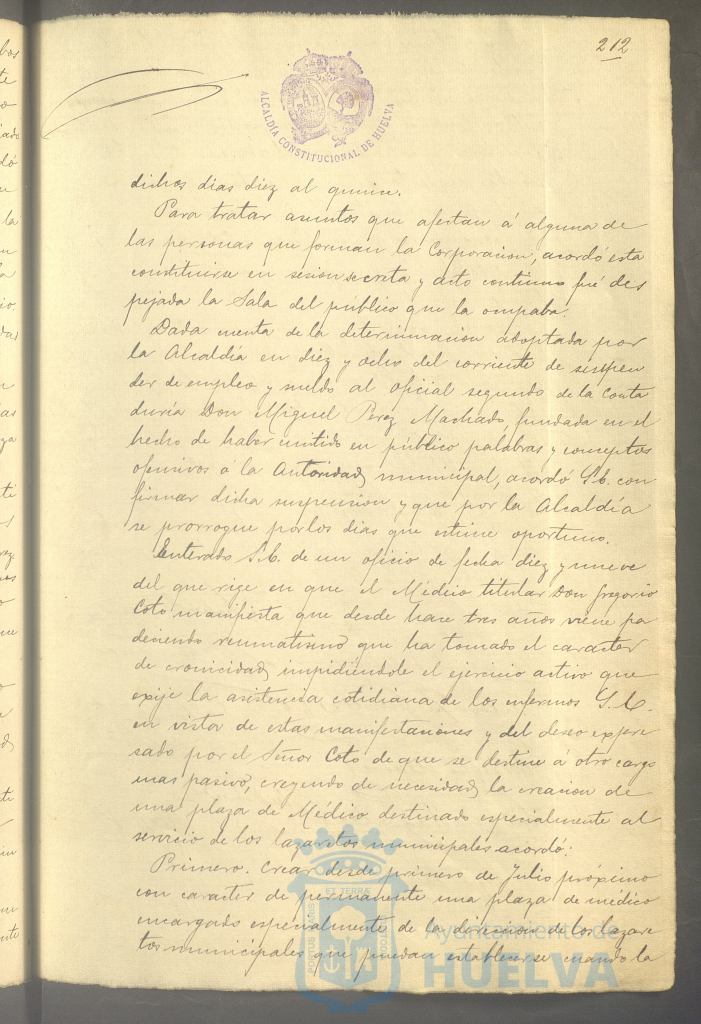 212
ALCALDÍA CONSTITUCIONAL DE HUELVA
dichos dias diez al quince.
Para tratar asuntos que afectan á alguna de
las personas que forman la Corporacion, acordó esta
constituirse en sesion secreta y acto continuo fué des
pejada la Sala del público que la ocupaba.
Dada cuenta de la determinacion adoptada por
la Alcaldía en diez y ocho del corriente de suspen
der de empleo y sueldo al oficial segundo de la Conta
duría Don Miguel Perez Machado, fundada en el
hecho de haber emitido en público palabras y conceptos
ofensivos á la Autoridad municipal, acordó S.E. con
firmar dicha suspension y que por la Alcaldía
se prorrogue por los dias que estime oportuno.
Enterado S.E. de un oficio de fecha diez y nueve
del que rige en que el Médico titular Don Gregorio
Coto manifiesta que desde hace tres años viene pa
deciendo reumatismo que ha tomado el caracter
de cronicidad, impidiéndole el ejercicio activo que
exije la asistencia cotidiana de los enfermos S.E.
en vista de estas manifestaciones y del deseo expre
sado por el Señor Coto de que se destine á otro cargo
mas pasivo, creyendo de necesidad la creacion de
una plaza de Médico destinado especialmente al
servicio de los lazaretos municipales acordó:
Primero. Crear desde primero de Julio próximo
con caracter de permanente una plaza de médico
encargado especialmente de la direccion de los lazare
tos municipales que puedan establecerse cuando la
Ayuntamiento de
HUELVA
PORTUS MARIS ET TERRÆ CUSTODIA